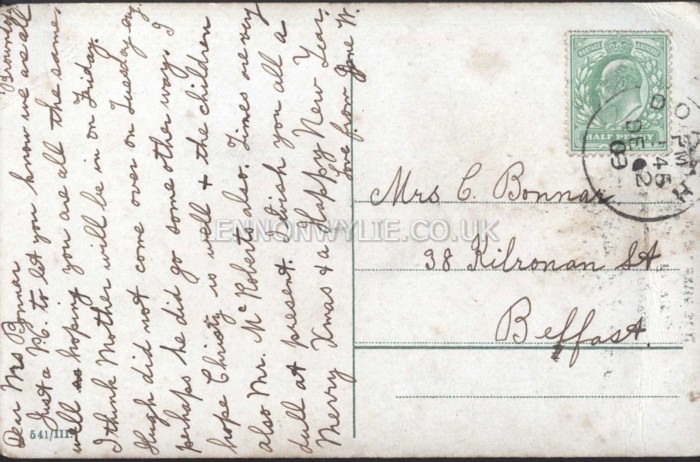 Brownlow
Dear Mrs Bonnar
Just a P.c. to let you know we are all
well & hoping you are all the same
I think Mother will be in on Friday.
Hugh did not come over on Tuesday
perhaps he did go some other way. I
hope Christy is well & the children
also Mr. McRoberts also. Times are very
dull at present. I wish you all a
Merry Xmas & a Happy New Year,
love from Jane W.
541/111.
POSTAGE REVENUE
HALF PENNY
OMAGH
45 PM
DE 2
09
Mrs C. Bonnar
38 Kilronan St
Belfast.
LENNONWYLIE.CO.UK